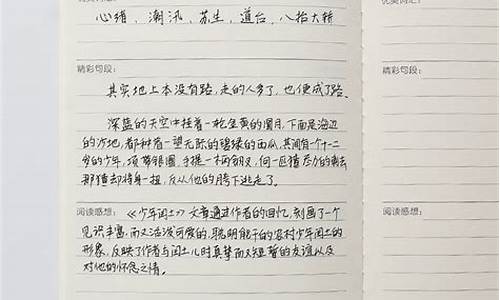 心绪、潮汛、苏生、道台、八抬大轿
精彩句段:
精彩句段:
其实地上本没有路,走的人多了,也便成了路。
深蓝的天空中挂着一轮金黄的圆月,下面是海边
的沙地,都种着一望无际的碧绿的西瓜,其间有一个十二
岁的少年,项带银圈,手提一柄钢叉,向一匹猹尽力的刺去
那猹却将身一扭,反从他的胯下逃走了。
阅读感想:
阅读感想:
《少年闰土》文章通过作者的回忆,刻画了一个
见识丰富,而又活泼可爱的,聪明能干的农村少年闰土的
形象,反映了作者与闰土儿时真挚而又短暂的友谊以及
对他的怀念之情。